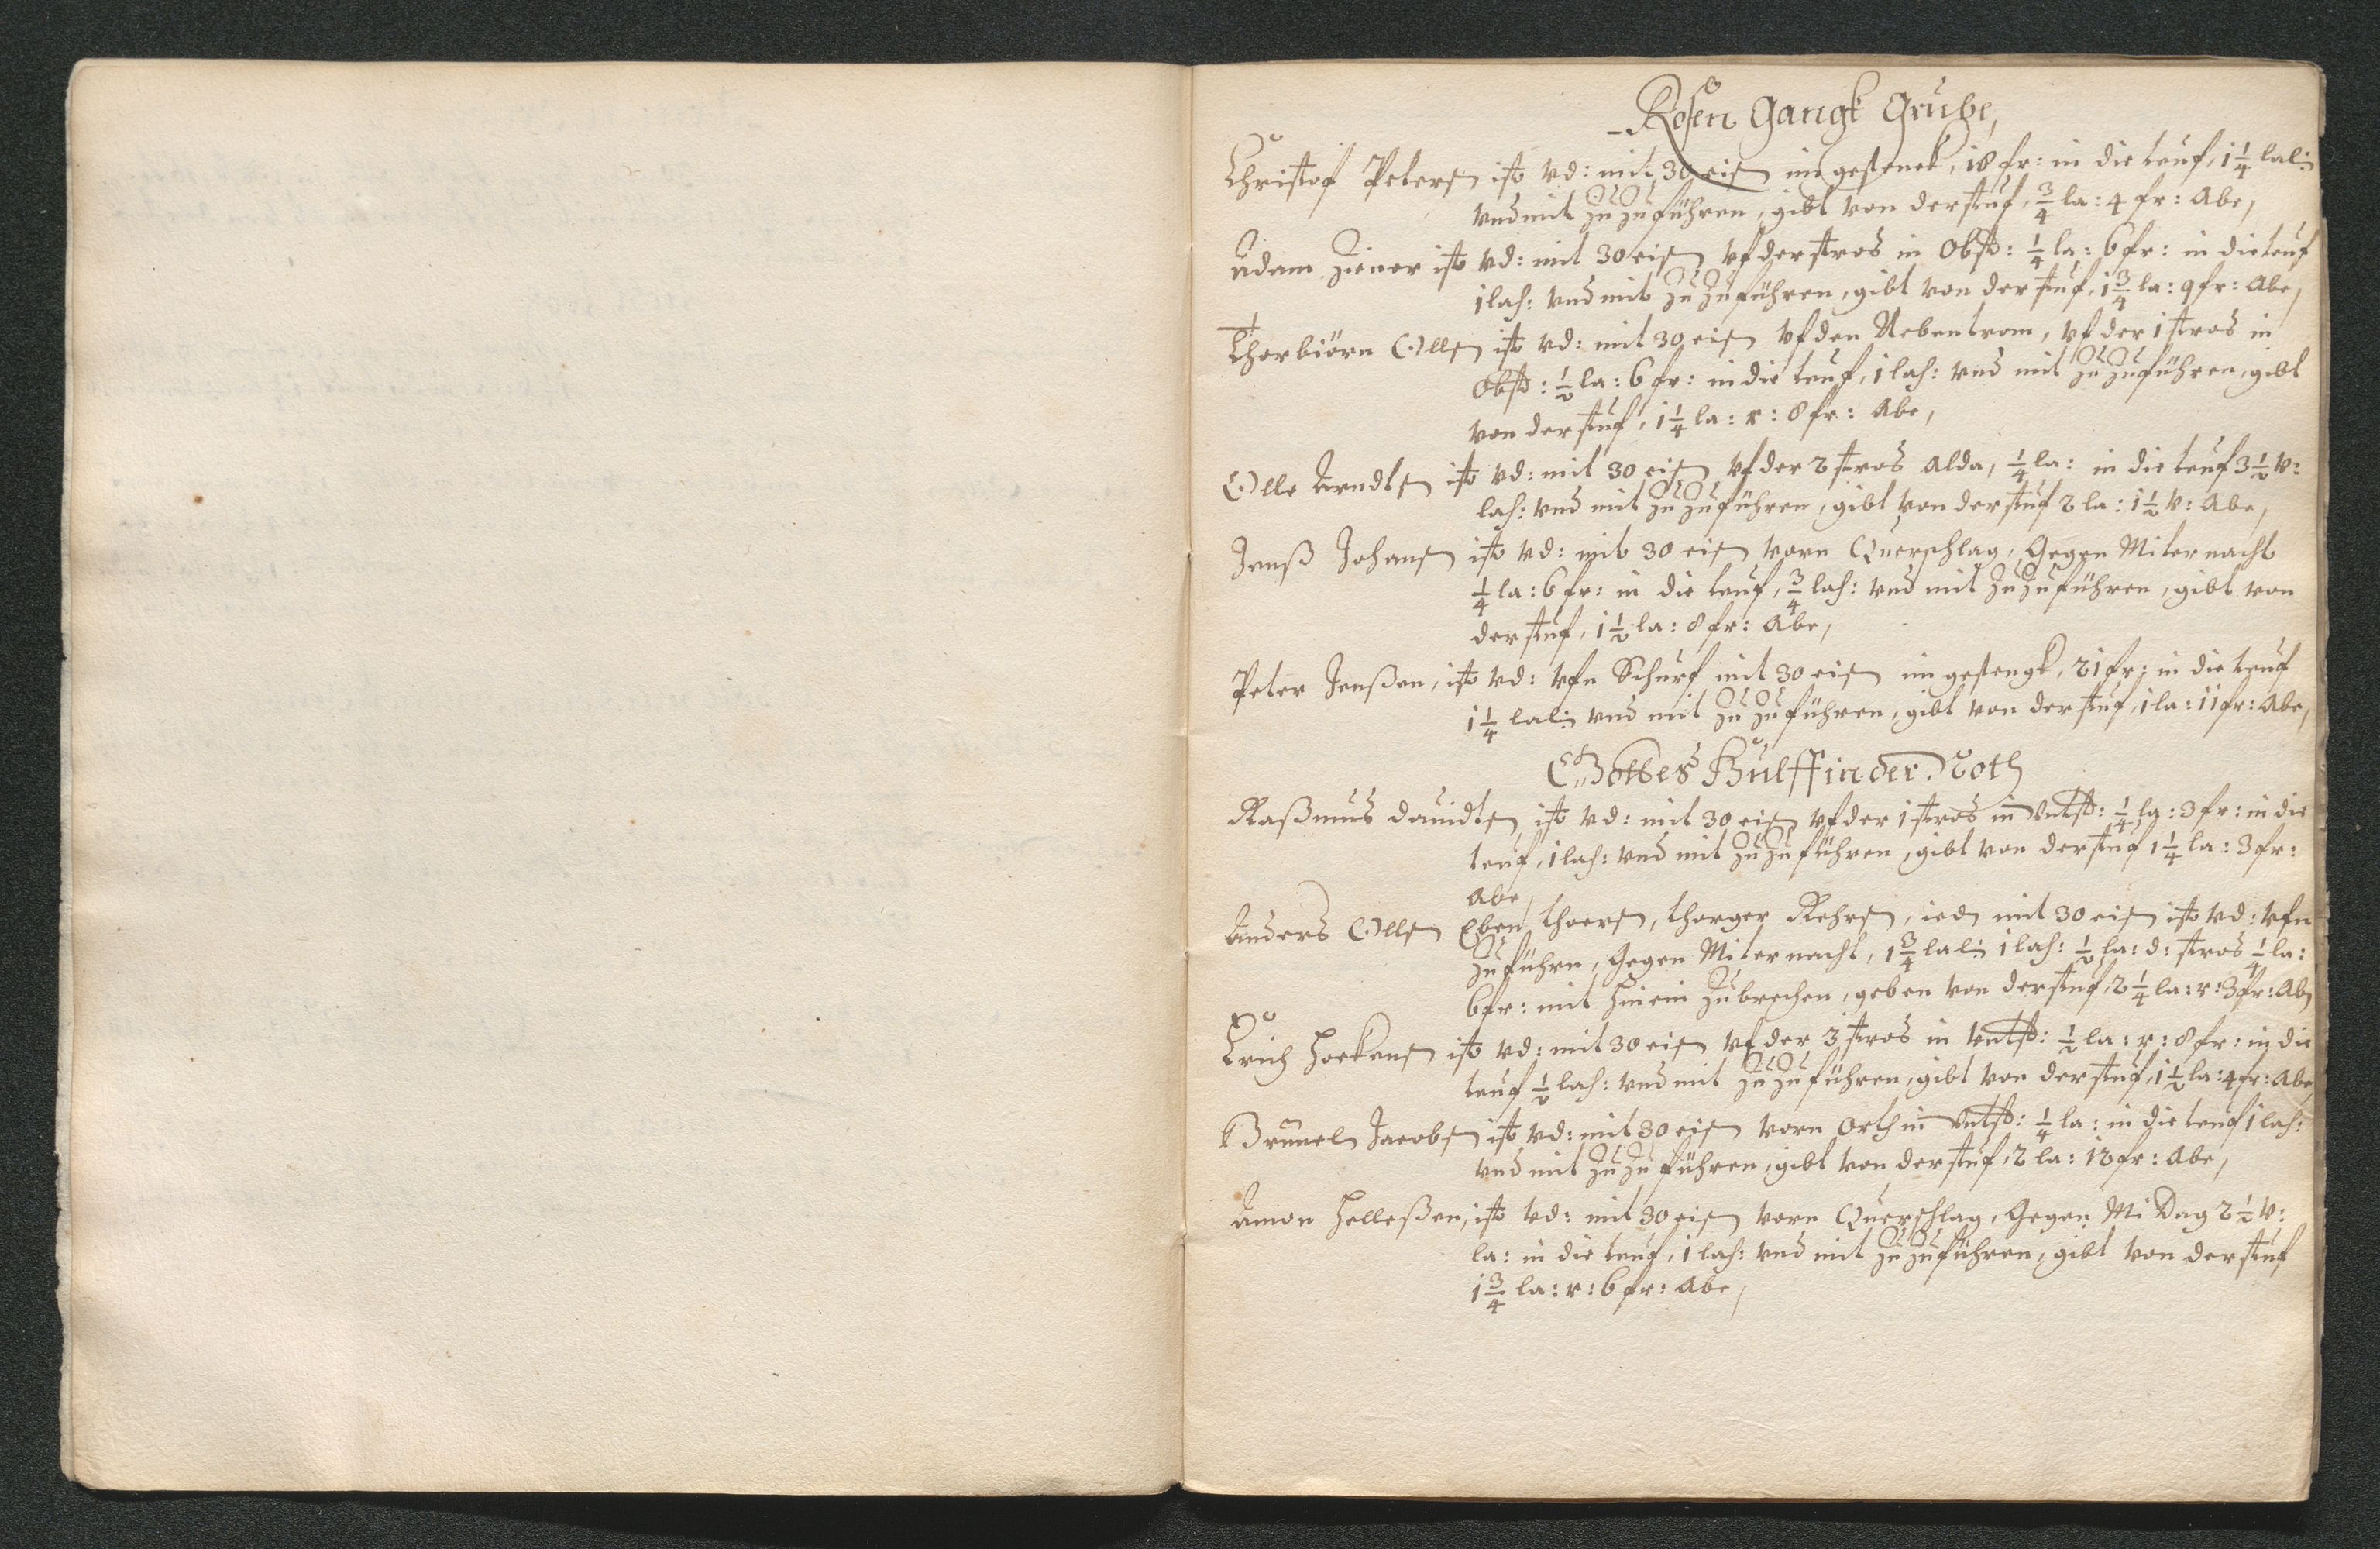 Rosen Gangk Grube,
Christof Petersen ist vd: mit 30 eisen im gestenck, 18 fr: in die teuf, 1 1/4 lal:
vnd mit zu zu führen, gibt von der stuf, 3/4 la: 4 fr: Abe,
Adam Ziener ist vd: mit 30 eisen vf der stros in Obst: 1/4 la: 6 fr: in die teuf
1 lah: vnd mit zu zu führen, gibt von der stuf, 1 3/4 la: 9 fr: Abe,
Thorbiörn Ollsen ist vd: mit 30 eisen vf den Nebentrom, vf der 1 stros in
Obst: 1/2 la: 6 fr: in die teuf, 1 lah: vnd mit zu zu führen, gibt
von der stuf, 1 1/4 la: r: 8 fr: Abe,
Olle Arndtsen ist vd: mit 30 eisen vf der 2 stros Alda, 1/4 la: in die teuf 3 1/2 v:
lah: vnd mit zu zu führen, gibt von der stuf 2 la: 1 1/2 v: Abe,
Jenß Johansen ist vd: mit 30 eisen vorn Querschlag, Gegen Miternacht
1/4 la: 6 fr: in die teuf, 3/4 lah: vnd mit zu zu führen, gibt von
der stuf, 1 1/2 la: 8 fr: Abe,
Peter Jenßen, ist vd: vfn Schurf mit 30 eisen im gestengk, 21 fr: in die teuf
1 1/4 lal: vnd mit zu zu führen, gibt von der stuf, 1 la: 11 fr: Abe,
Gottes Hülff in der Noth
Raßmus Dauidtsen, ist vd: mit 30 eisen vf der 1 stros in Vntst: 1/4 la: 3 fr: in die
teuf, 1 lah: vnd mit zu zu führen, gibt von der stuf 1 1/4 la: 3 fr:
Abe,
Anders Ollsen Eben Thoersen, Thorger Rehrsen, ieden mit 30 eisen ist vd: vfn
zu führn, Gegen Miternacht, 1 3/4 lal: 1 lah: 1/2 la: d: stros 1/4 la:
6 fr: mit hinein zu brechen, geben von der stuf, 2 1/4 la: r: 3 fr: Ab
Erich Hoekensen ist vd: mit 30 eisen vf der 3 stros in vntst: 1/2 la: r: 8 fr: in die
teuf 1/2 lah: vnd mit zu zu führen, gibt von der stuf, 1 1/2 la: 4 fr: Abe,
Brünel Jacobsen ist vd: mit 30 eisen vorn Orth in Vntst: 1/4 la: in die teuf 1 lah:
vnd mit zu zu führen, gibt von der stuf, 2 la: 12 fr: Abe,
Amon Helleßen, ist vd: mit 30 eisen vorn Querschlag, Gegen Mi Dag 2 1/2 v:
la: in die teuf, 1 lah: vnd mit zu zu führen, gibt von der stuf
1 3/4 la: r: 6 fr: Abe,